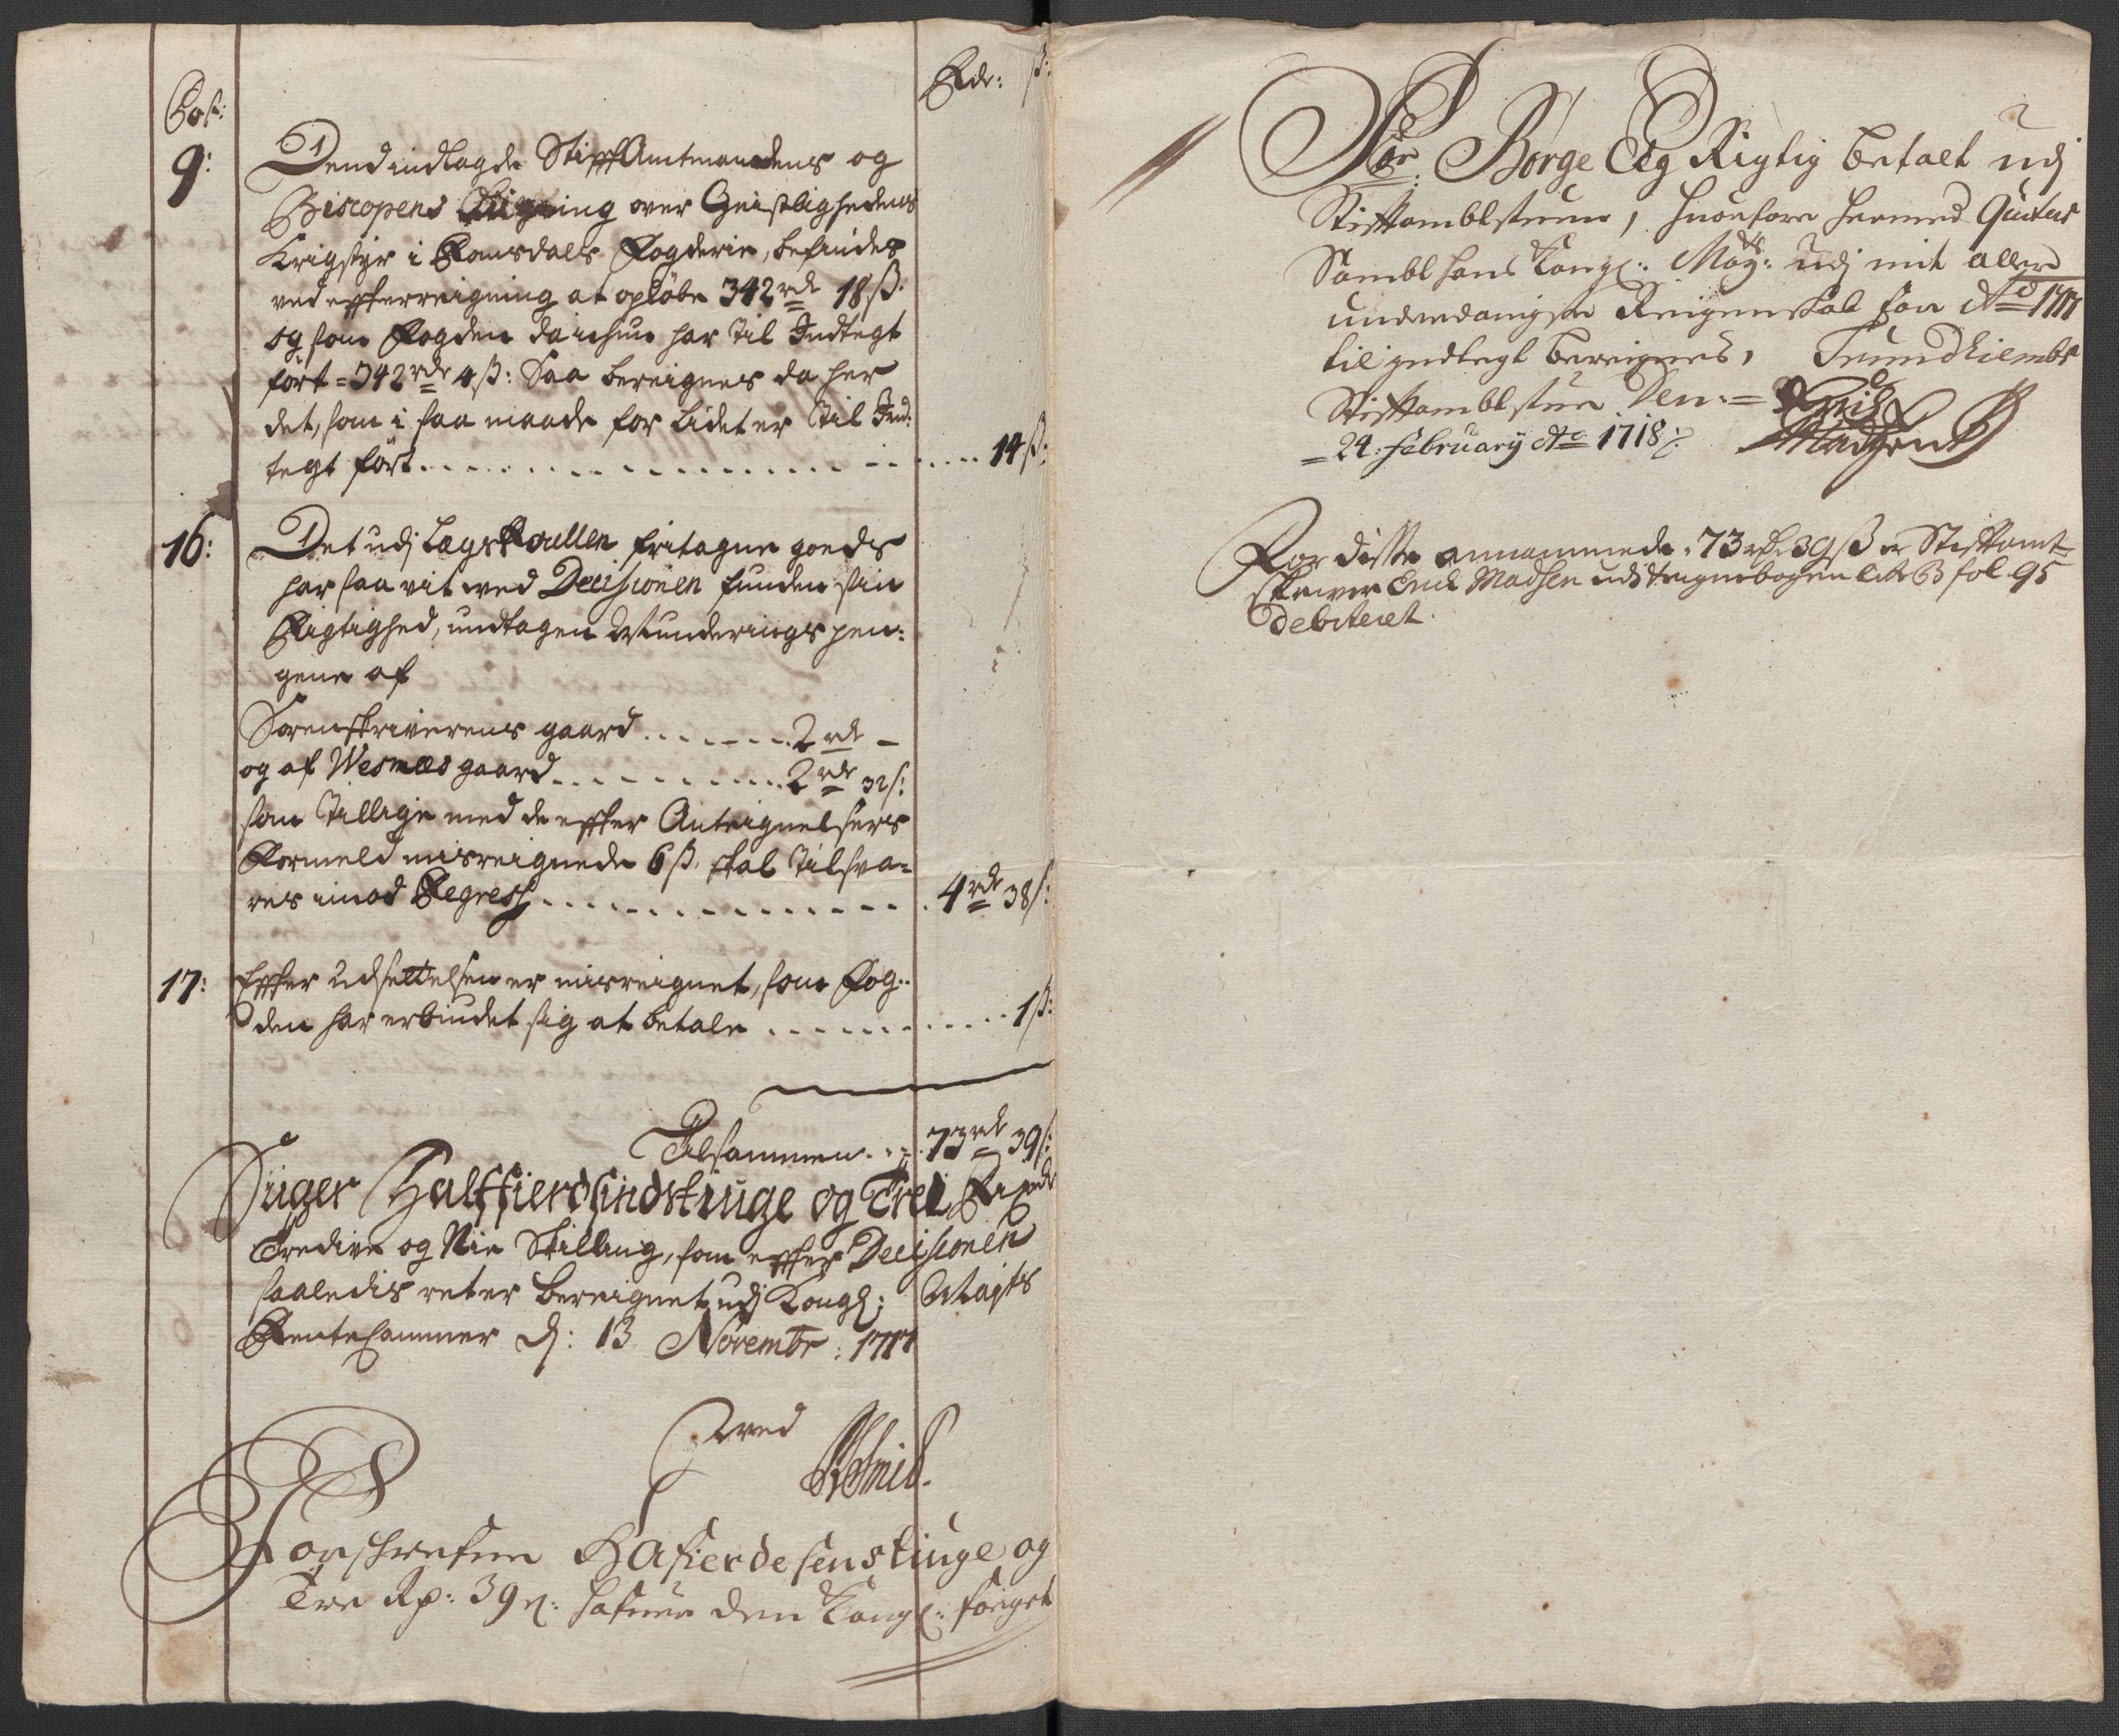 Rdr: ß:
Pos:
9: Dend indlagde StifftAmtmandens og
Biscopens Ligning over Geistlighedens
Krigstyr i Romsdals Fogderie, befindes
ved effterreigning at opløbe 342 rdr 18 ß.
og som Fogden da ichun har til Indtegt
ført = 342 rdr 4 ß: Saa bereignes da her
det, som i saa maade for lidet er til Ind:
tegt ført . . . . 14 ß:
16: Det udj LægsRoullen fritagne goeds
har saa vit ved Decisionen funden sin
Rigtighed, undtagen Munderings pen:
gene af
Sorenskriverens gaard . . . . 2 rdr -
og af Wesnæs gaard . . . . 2 rdr 32 ß:
som tillige med de effter Antegnelsers
Formeld misreignede 6 ß. skal tilsva=
res imod Regress . . . . 4 rdr 38 ß:
17: Effter udsettelsen er misreignet, som Fog:
den har erbiudet sig at betale . . . . 1 ß:
Tilsammen . . 73 rdr 39 ß:
Siiger Halffierdsindstiuge og Trei Rixdr
Tredive og Nie Skilling, som effter Decisionen
saaledis ret er bereignet udj Kongl: Mayts
RenteCammer d: 13 Novembr: 1717
ved
Forschrefne Hafierdesenstiuge og
Tre Rp: 39 ß: hafuer den Kongl: foiget
Hr: Børge Eeg Rigtig betalt udj
Stifftambtstuen, huorfore hermed Quiteres
Sambt hans Kongl: May:ts udj mit aller
underdanigste Reigenskab for Ao 1717
til indtegt bereignes, Trundhiembs
Stifftambtstue Den: =
= 24: February Ao 1718 Erich Madsen
For disse annammede 73 rdr 39 ß er Stifftamt=
skriver Erich Madsen udj Reignebogen litr B fol 95
debiteret.